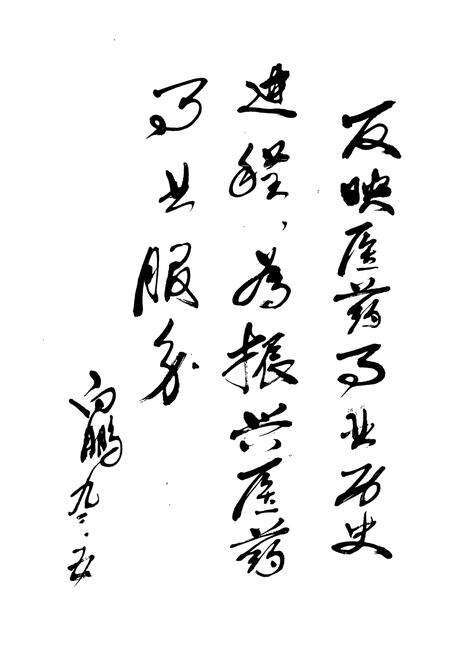 反映医药事业历史
进程，为振兴医药
事业服务
向鹏 九二·五